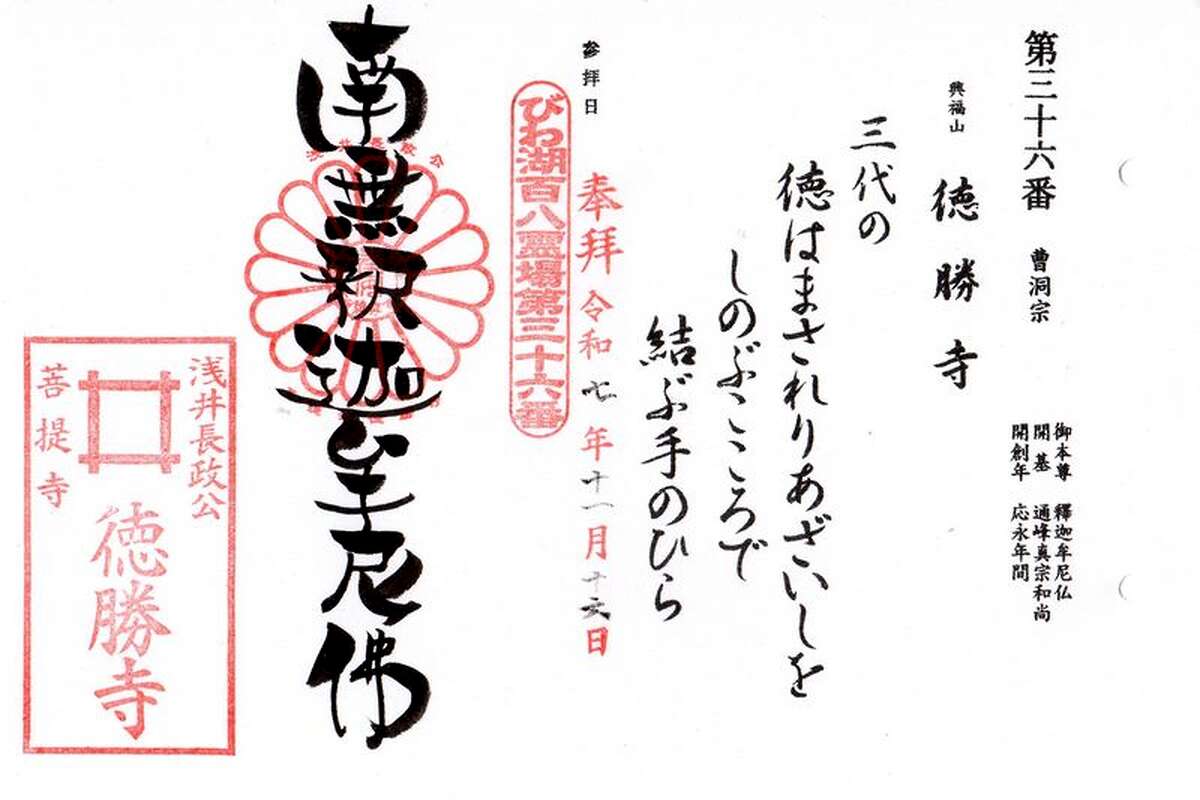 第三十六番 曹洞宗
御本尊 釋迦牟尼仏
開基 通峰真宗和尚
開創年 応永年間
興福山 徳勝寺
三代の
徳はまされりあざいしを
しのぶこころで
結ぶ手のひら
参拝日
奉拝 令和七年十一月十六日
びわ湖百八霊場第三十六番
南無釈迦牟尼佛
浅井長政公
浅井長政公
徳勝寺
菩提寺